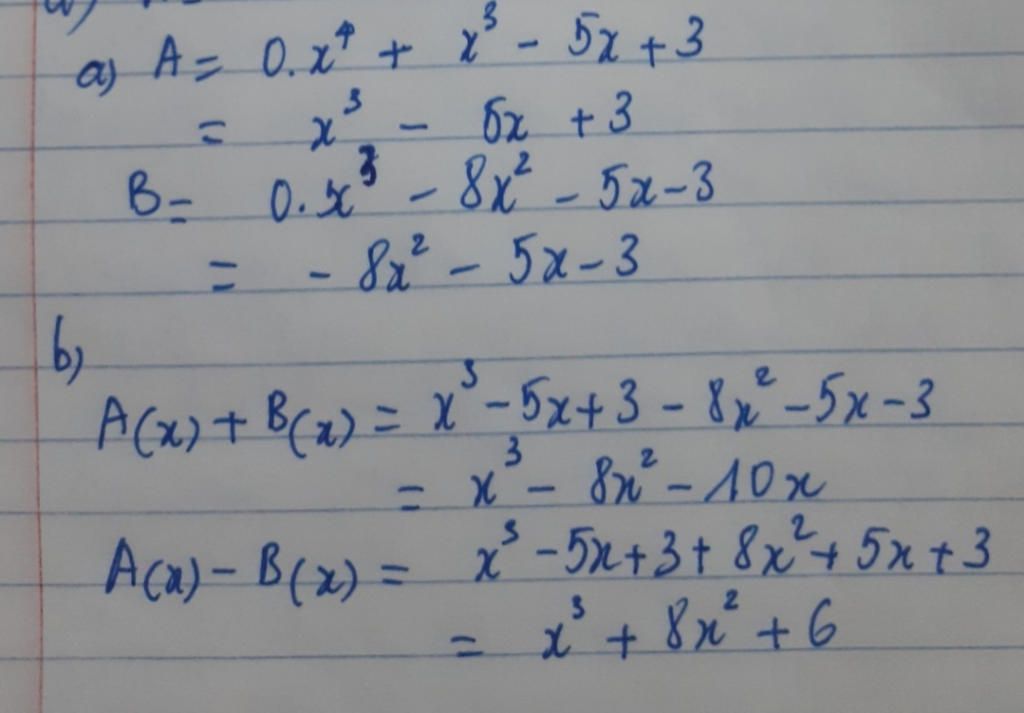 a) A = 0.x⁴ + x³ - 5x + 3
= x³ - 5x + 3
B = 0.x³ - 8x² - 5x - 3
= - 8x² - 5x - 3
b)
A(x) + B(x) = x³ - 5x + 3 - 8x² - 5x - 3
= x³ - 8x² - 10x
A(x) - B(x) = x³ - 5x + 3 + 8x² + 5x + 3
= x³ + 8x² + 6